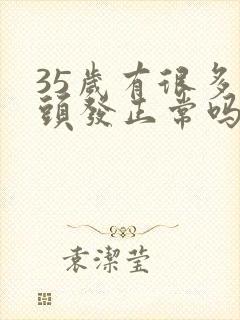 35歲有很多
頭發正常吗
袁潔莹